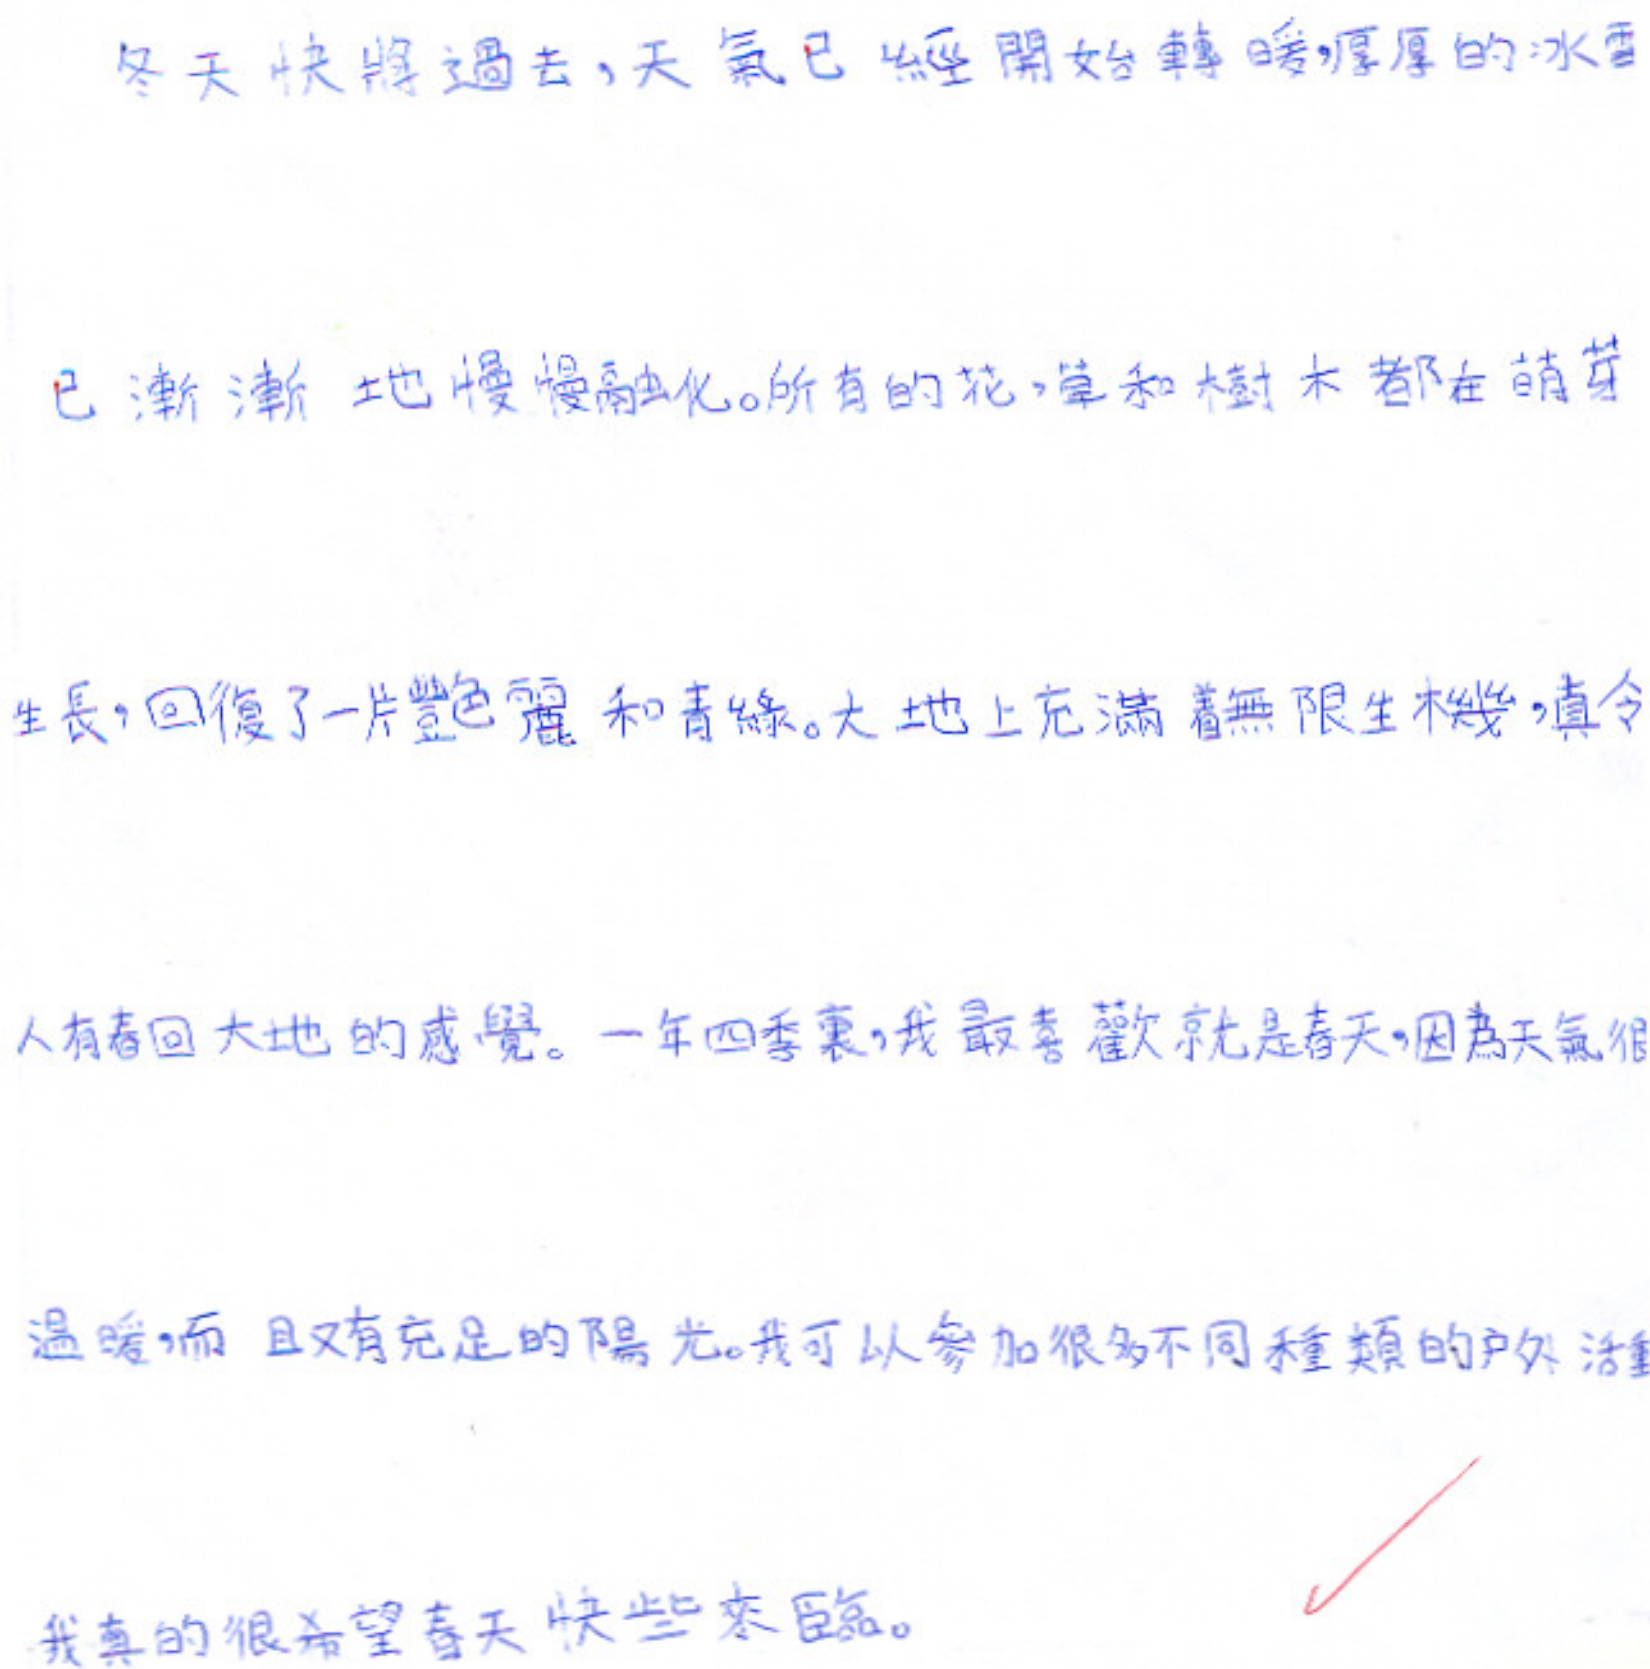 冬天快將過去，天氣已經開始轉暖，厚厚的冰雪
已漸漸地慢慢融化。所有的花，草和樹木都在萌芽
生長，回復了一片豔麗和青綠。大地上充滿着無限生機，真令
人有春回大地的感覺。一年四季裏，我最喜歡就是春天，因為天氣很
温暖，而且又有充足的陽光。我可以參加很多不同種類的户外活動
我真的很希望春天快些來臨。